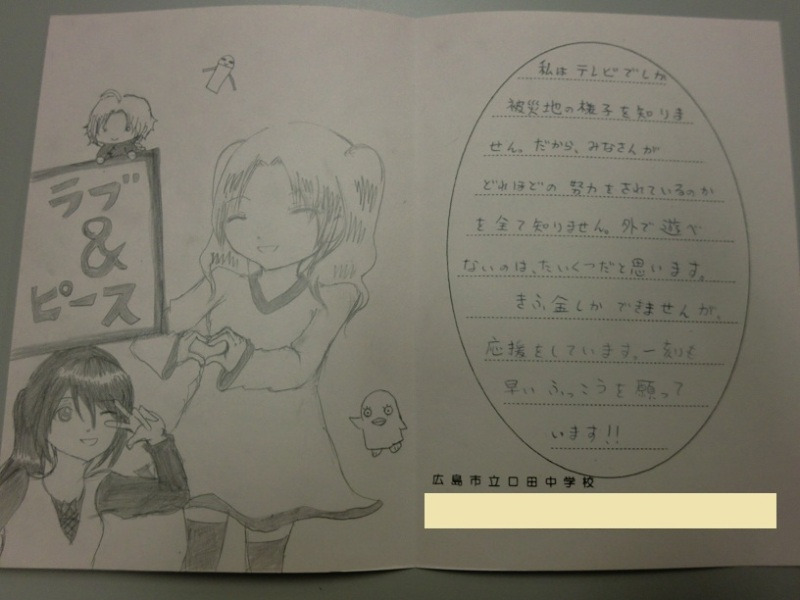 ラブ
&
ピース
私はテレビでしか
被災地の様子を知りま
せん。だから、みなさんが
どれほどの努力をされているのか
を全て知りません。外で遊べ
ないのは、たいくつだと思います。
きふ金しかできませんが、
応援をしています。一刻も
早いふっこうを願って
います!!
広島市立口田中学校